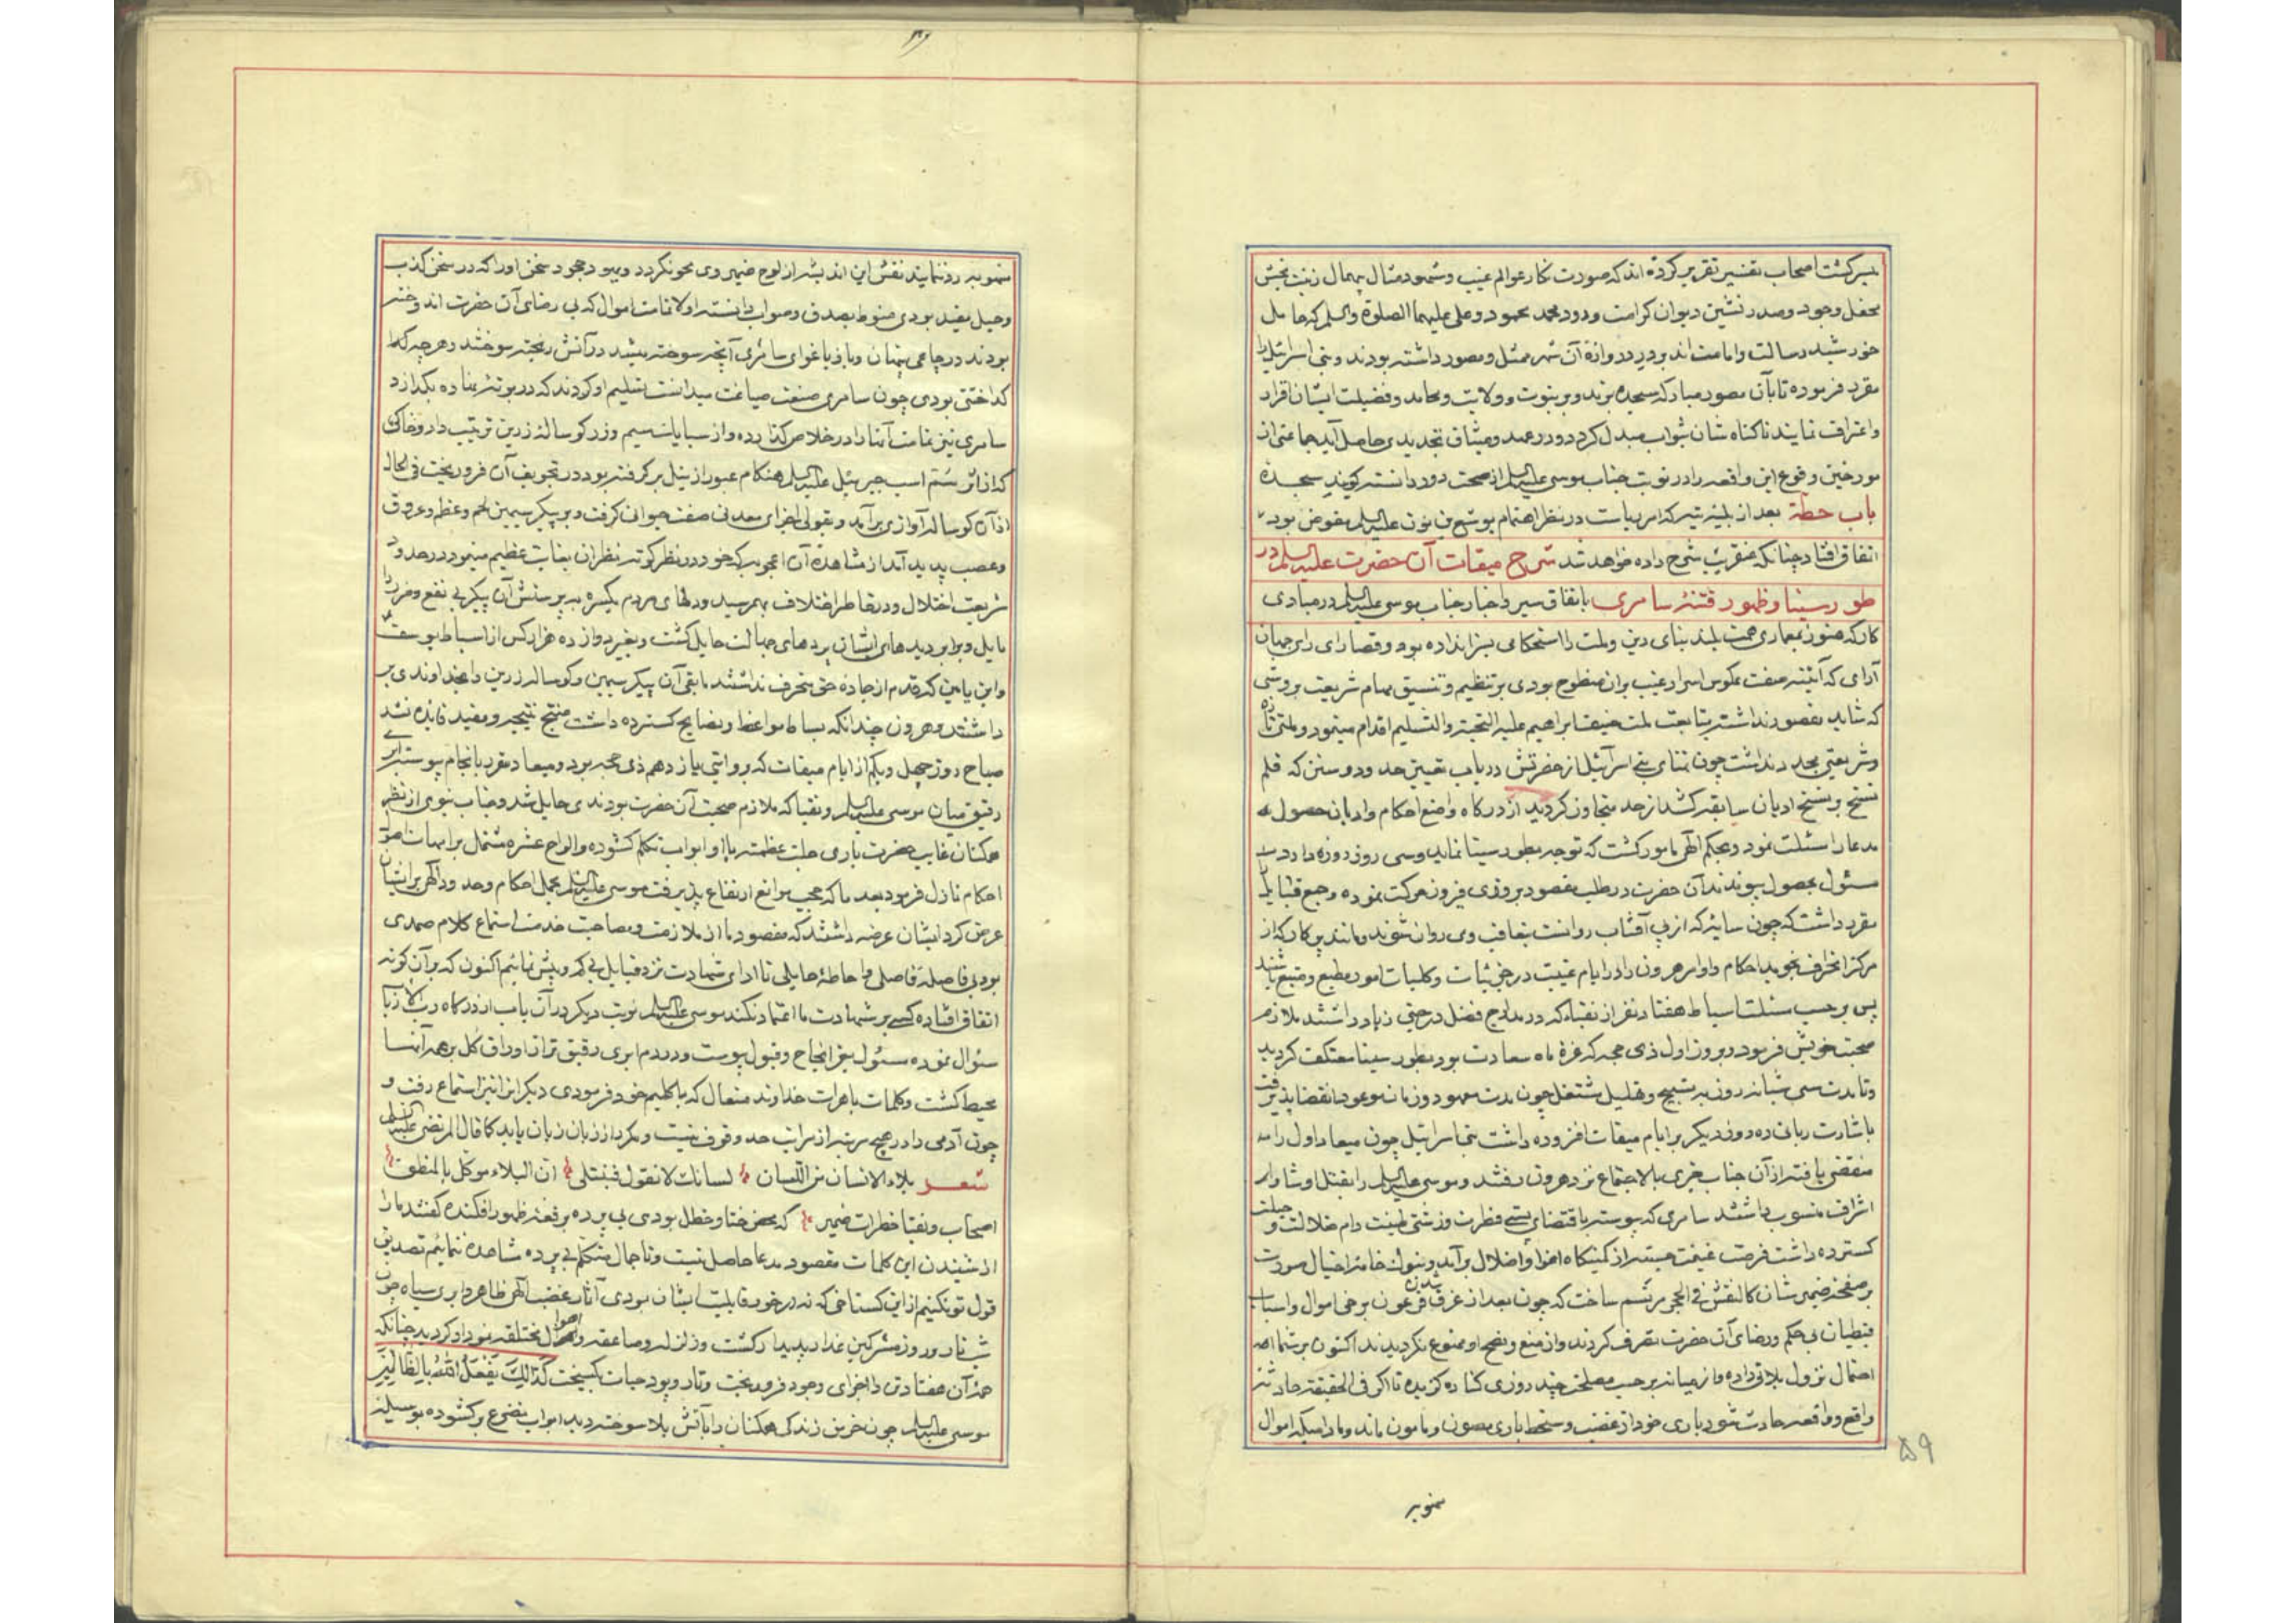 میسر گشت اصحاب تفسیر تقریر کرده اند که صورت نگار عوالم غیب و شهود مثال بیمثال زینت بخش
محفل وجود و صدر نشین دیوان کرامت ودود محمد محمود و علی علیهما الصلوة والسلم که حامل
خورشید رسالت و امامت اند بر در دروازهٔ آن شهر ممثل و مصور داشته بودند و بنی اسرائیل را
مقرر فرموده تا بآن صور مبارکه سجده برند و بر نبوت و ولایت و محامد و فضیلت ایشان اقرار
و اعتراف نمایند تا گناه شان بثواب مبدل گردد و در عهد و میثاق تجدیدی حاصل آید جماعتی از
مورخین وقوع این واقعه را در نوبت جناب موسی علیه السلم از صحت دور دانسته گویند سجدهٔ
باب حطة بعد از بلیهٔ تیه که امر ریاست در نظر اهتمام یوشع بن نون علیه السلم مفوض بود
اتفاق افتاد چنانکه عنقریب شرح داده خواهد شد شرح میقات آن حضرت علیه السلم در
طور سینا و ظهور فتنهٔ سامری باتفاق سیر و اخبار جناب موسی علیه السلم در مبادی
کار که هنوز بمعماری همت بلند بنای دین و ملت را استحکامی بسزا نداده بود و قصارای رای جهان
آرای که آئینه صفت عکوس اسرار غیب بران منطبع بودی بر تنظیم و تنسیق مهام شریعت بروشی
که شاید مقصور نداشته بمتابعت ملت حنیف ابراهیم علیه التحیة والتسلیم اقدام مینمود و ملتی تازه
و شریعتی مجدد نداشت چون تمنای بنی اسرائیل از حضرتش در باب تعیین حدود و سنن که قلم
نسخ بر نسخ ادیان سابقه کشد از حد متجاوز گردید از درگاه واضع احکام و ادیان حصول
مدعا را مسئلت نمود و بحکم الهی مامور گشت که توجه بطور سینا نماید و سی روز روزه دارد تا
مسئول بحصول پیوندد آن حضرت در طلب مقصود بروزی فیروز حرکت نموده و جمع قبایل را
مقرر داشت که چون سایه که از پی آفتاب روانست بتعاقب وی روان شوند و مانند پرگار که از
مرکز انحراف نجوید احکام و اوامر هرون را در ایام غیبت در جزئیات و کلیات امور مطیع و متبع باشند
پس بر حسب مسئلت اسباط هفتاد نفر از نقباء که در مدارج فضل درجتی زیاد داشتند ملازم
صحبت خویش فرمود و بروز اول ذی حجه که غرهٔ ماه سعادت بود بطور سینا معتکف گردید
و تا مدت سی شبانه روز به تسبیح و تهلیل مشتغل چون مدت معهود و زمان موعود انقضا پذیرفت
باشارت ربانی ده روز دیگر بر ایام میقات افزوده داشت بنی اسرائیل چون میعاد اول را مدت
منقضی یافته از آن جناب خبری بالاجتماع نزد هرون رفتند و موسی علیه السلم را بقتل اوشاد و
اشراف منسوب داشتند سامری که پیوسته باقتضای پستی فطرت و زشتی طینت دام ضلالت و جهالت
گسترده داشت فرصت غنیمت جسته از کمینگاه اغوا و اضلال برآمد و بنوک خامهٔ احتیال صورت
بر صفحه ضمیر شان کالنقش فی الحجر مرتسم ساخت که چون بعد از غرق شدن فرعون برخی اموال و اسباب
قبطیان بی حکم و رضای آن حضرت تصرف کردند و از منع و نصح او ممنوع نگردیدند اکنون بر شما
احتمال نزول بلائی داده و از میانه بر حسب مصلحت چند روزی کناره گزیده تا اگر فی الحقیقه حادثهٔ
واقع و واقعه حادث شود باری خود از غضب و سخط باری مصون و مامون ماند و مادامیکه اموال
منهوبه
۵۹
منهوبه رد ننمایند نقش این اندیشه از لوح ضمیر وی محو نگردد و یهود جحود سخن او را که در سخن کذب
و حیل مقید بودی منوط بصدق و صواب دانسته اولا تمامت اموال که بی رضای آن حضرت اندوخته
بودند در چاهی پنهان و باز باغوای سامری آنچه سوخته میشد در آتش ریخته سوختند و هر چه که
گداختنی بودی چون سامری صنعت صیاغت میدانست تسلیم او کردند که در بوته نهاده بگدازد
سامری نیز تمامت آنها را در خلاص گذارده و از سبایک سیم و زر گوسالهٔ زرین ترتیب داد و خاکی
که از اثر سم اسب جبرئیل علیه السلم هنگام عبور از نیل بر گرفته بود در تجویف آن فرو ریخت فی الحال
از آن گوساله آوازی برآمد و بقولی اجزای معدنی صفت حیوانی گرفت و بر پیکر سیمین لحم و عظم و عروق
و عصب پدید آمد از مشاهدهٔ آن اعجوبه که خود در نظر کوته نظران بغایت عظیم مینمود در حدود
شریعت اختلال و در خاطر اختلاف بهم رسید و دلهای مردم یکسره به پرستش آن پیکر بی نفع و ضرر
مایل و برابر دید های ایشان پرده های جهالت حایل گشت و بغیر دوازده هزار کس از اسباط یوسف
و ابن یامین که قدم از جادهٔ حق منحرف نداشتند ما بقی آن پیکر سیمین و گوسالهٔ زرین را بخداوندی بر
داشتند و هرون چندانکه بساط مواعظ و نصایح گسترده داشت منتج نتیجه و مفید فایده نشد
صباح روز چهل و یکم از ایام میقات که بروایتی یازدهم ذی حجه بود و میعاد مقرر بانجام پیوسته ابری
رقیق میان موسی علیه السلم و نقبا که ملازم صحبت آن حضرت بودندی حایل شد و جناب نبوی از نظر
همگنان غایب حضرت باری جلت عظمته با او ابواب تکلم گشوده و الواح عشره مشتمل بر امهات اصول
احکام نازل فرمود بعد ما که حجب موانع ارتفاع پذیرفت موسی علیه السلم مجمل احکام و حدود الهی بر ایشان
عرض کرد ایشان عرضه داشتند که مقصود ما از ملازمت و مصاحبت خدمت استماع کلام صمدی
بود بی فاصلهٔ فاصلی و احاطهٔ حایلی تا ادای شهادت نزد قبایل بی کم و بیش نمائیم اکنون که بر آن گونه
اتفاق افتاده کسی بر شهادت ما اعتماد نکند موسی علیه السلم نوبت دیگر در آن باب از درگاه رب الارباب
سئوال نموده مسئول بعز انجاح و قبول پیوست و در دم ابری رقیق تر از اوراق گل بر همه آنها
محیط گشت و کلمات باهرات خداوند متعال که با کلیم خود فرمودی دیگران را نیز استماع رفت و
چون آدمی را در هیچ مرتبه از مراتب حد وقوف نیست و مکرر از زبان زیان یابد کما قال المرتضی علیه السلم
شعر بلاء الانسان من اللسان لسانک لا تقول فتبتلی ان البلاء موکل بالمنطق
اصحاب و نقبا خطرات ضمیر که محض خنا و خطل بودی بی پرده بر قعهٔ ظهور افکنده گفتند ما را
از شنیدن این کلمات مقصود مدعا حاصل نیست و تا جمال متکلم بی پرده مشاهده ننمائیم تصدیق
قول تو نکنیم از این گستاخی که نه در خور قابلیت ایشان بودی آثار غضب الهی ظاهر و ابری سیاه چون
شب تار و روز مشرکین غدار پدیدار گشت و زلزله و صاعقه و اهوال مختلفه نمودار گردید چنانکه
همه آن هفتاد تن را اجزای وجود فرو ریخت و تار و پود حیات بگسیخت کذلک یفعل الله بالظالمین
موسی علیه السلم چون خرمن زندگی همگنان را بآتش بلا سوخته دید ابواب تضرع بر گشوده بوسیله